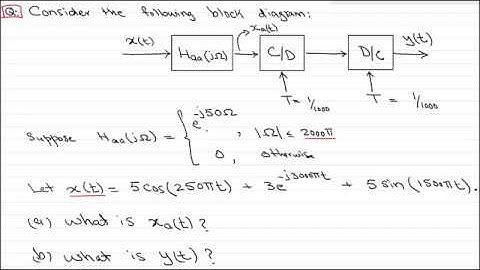 Q: Consider the following block diagram:
x(t) Haa(jΩ) xa(t) C/D D/C y(t)
T = 1/1000 T = 1/1000
Suppose Haa(jΩ) = { e^-j50Ω, |Ω| ≤ 2000π
0, otherwise
Let x(t) = 5cos(250πt) + 3e^-j3000πt + 5sin(1500πt).
(a) what is xa(t)?
(b) what is y(t)?